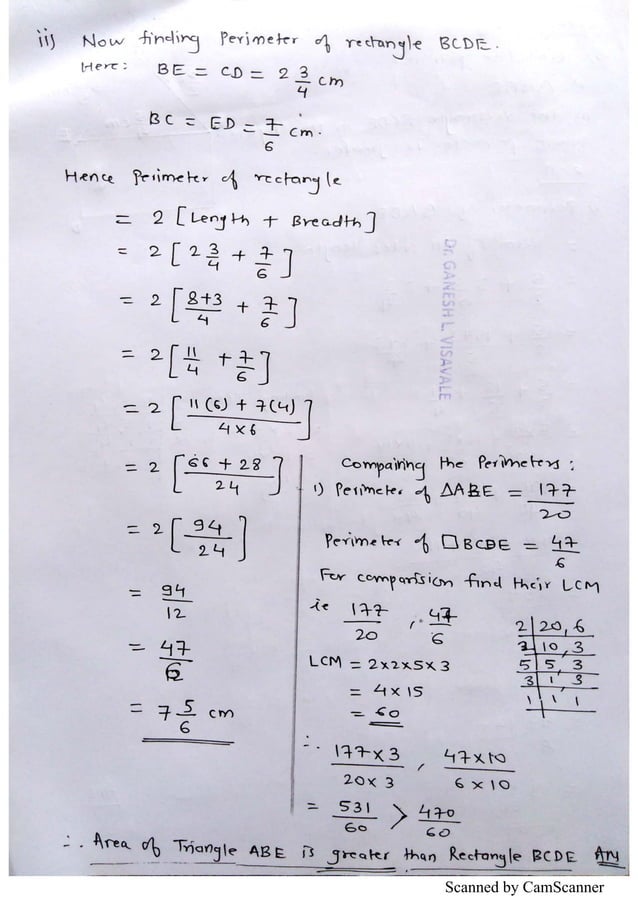 ii) Now finding Perimeter of rectangle BCDE.
Here: BE = CD = 2 3/4 cm
BC = ED = 7/6 cm.
Hence Perimeter of rectangle
= 2 [Length + Breadth]
= 2 [2 3/4 + 7/6]
= 2 [8+3/4 + 7/6]
= 2 [11/4 + 7/6]
= 2 [11(6) + 7(4)/4×6]
= 2 [66 + 28/24]
= 2 [94/24]
= 94/12
= 47/6
= 7 5/6 cm
Dr. GANESH L. VISAVALE
Compairing the Perimeters :
1) Perimeter of △ABE = 177/20
Perimeter of □BCDE = 47/6
For comparision find their LCM
ie 177/20 , 47/6
2 | 20, 6
2 | 10, 3
5 | 5, 3
3 | 1, 3
1 | 1 1
LCM = 2×2×5×3
= 4×15
= 60
∴ 177×3/20×3 , 47×10/6×10
= 531/60 > 470/60
∴ Area of Triangle ABE is greater than Rectangle BCDE Ans
Scanned by CamScanner